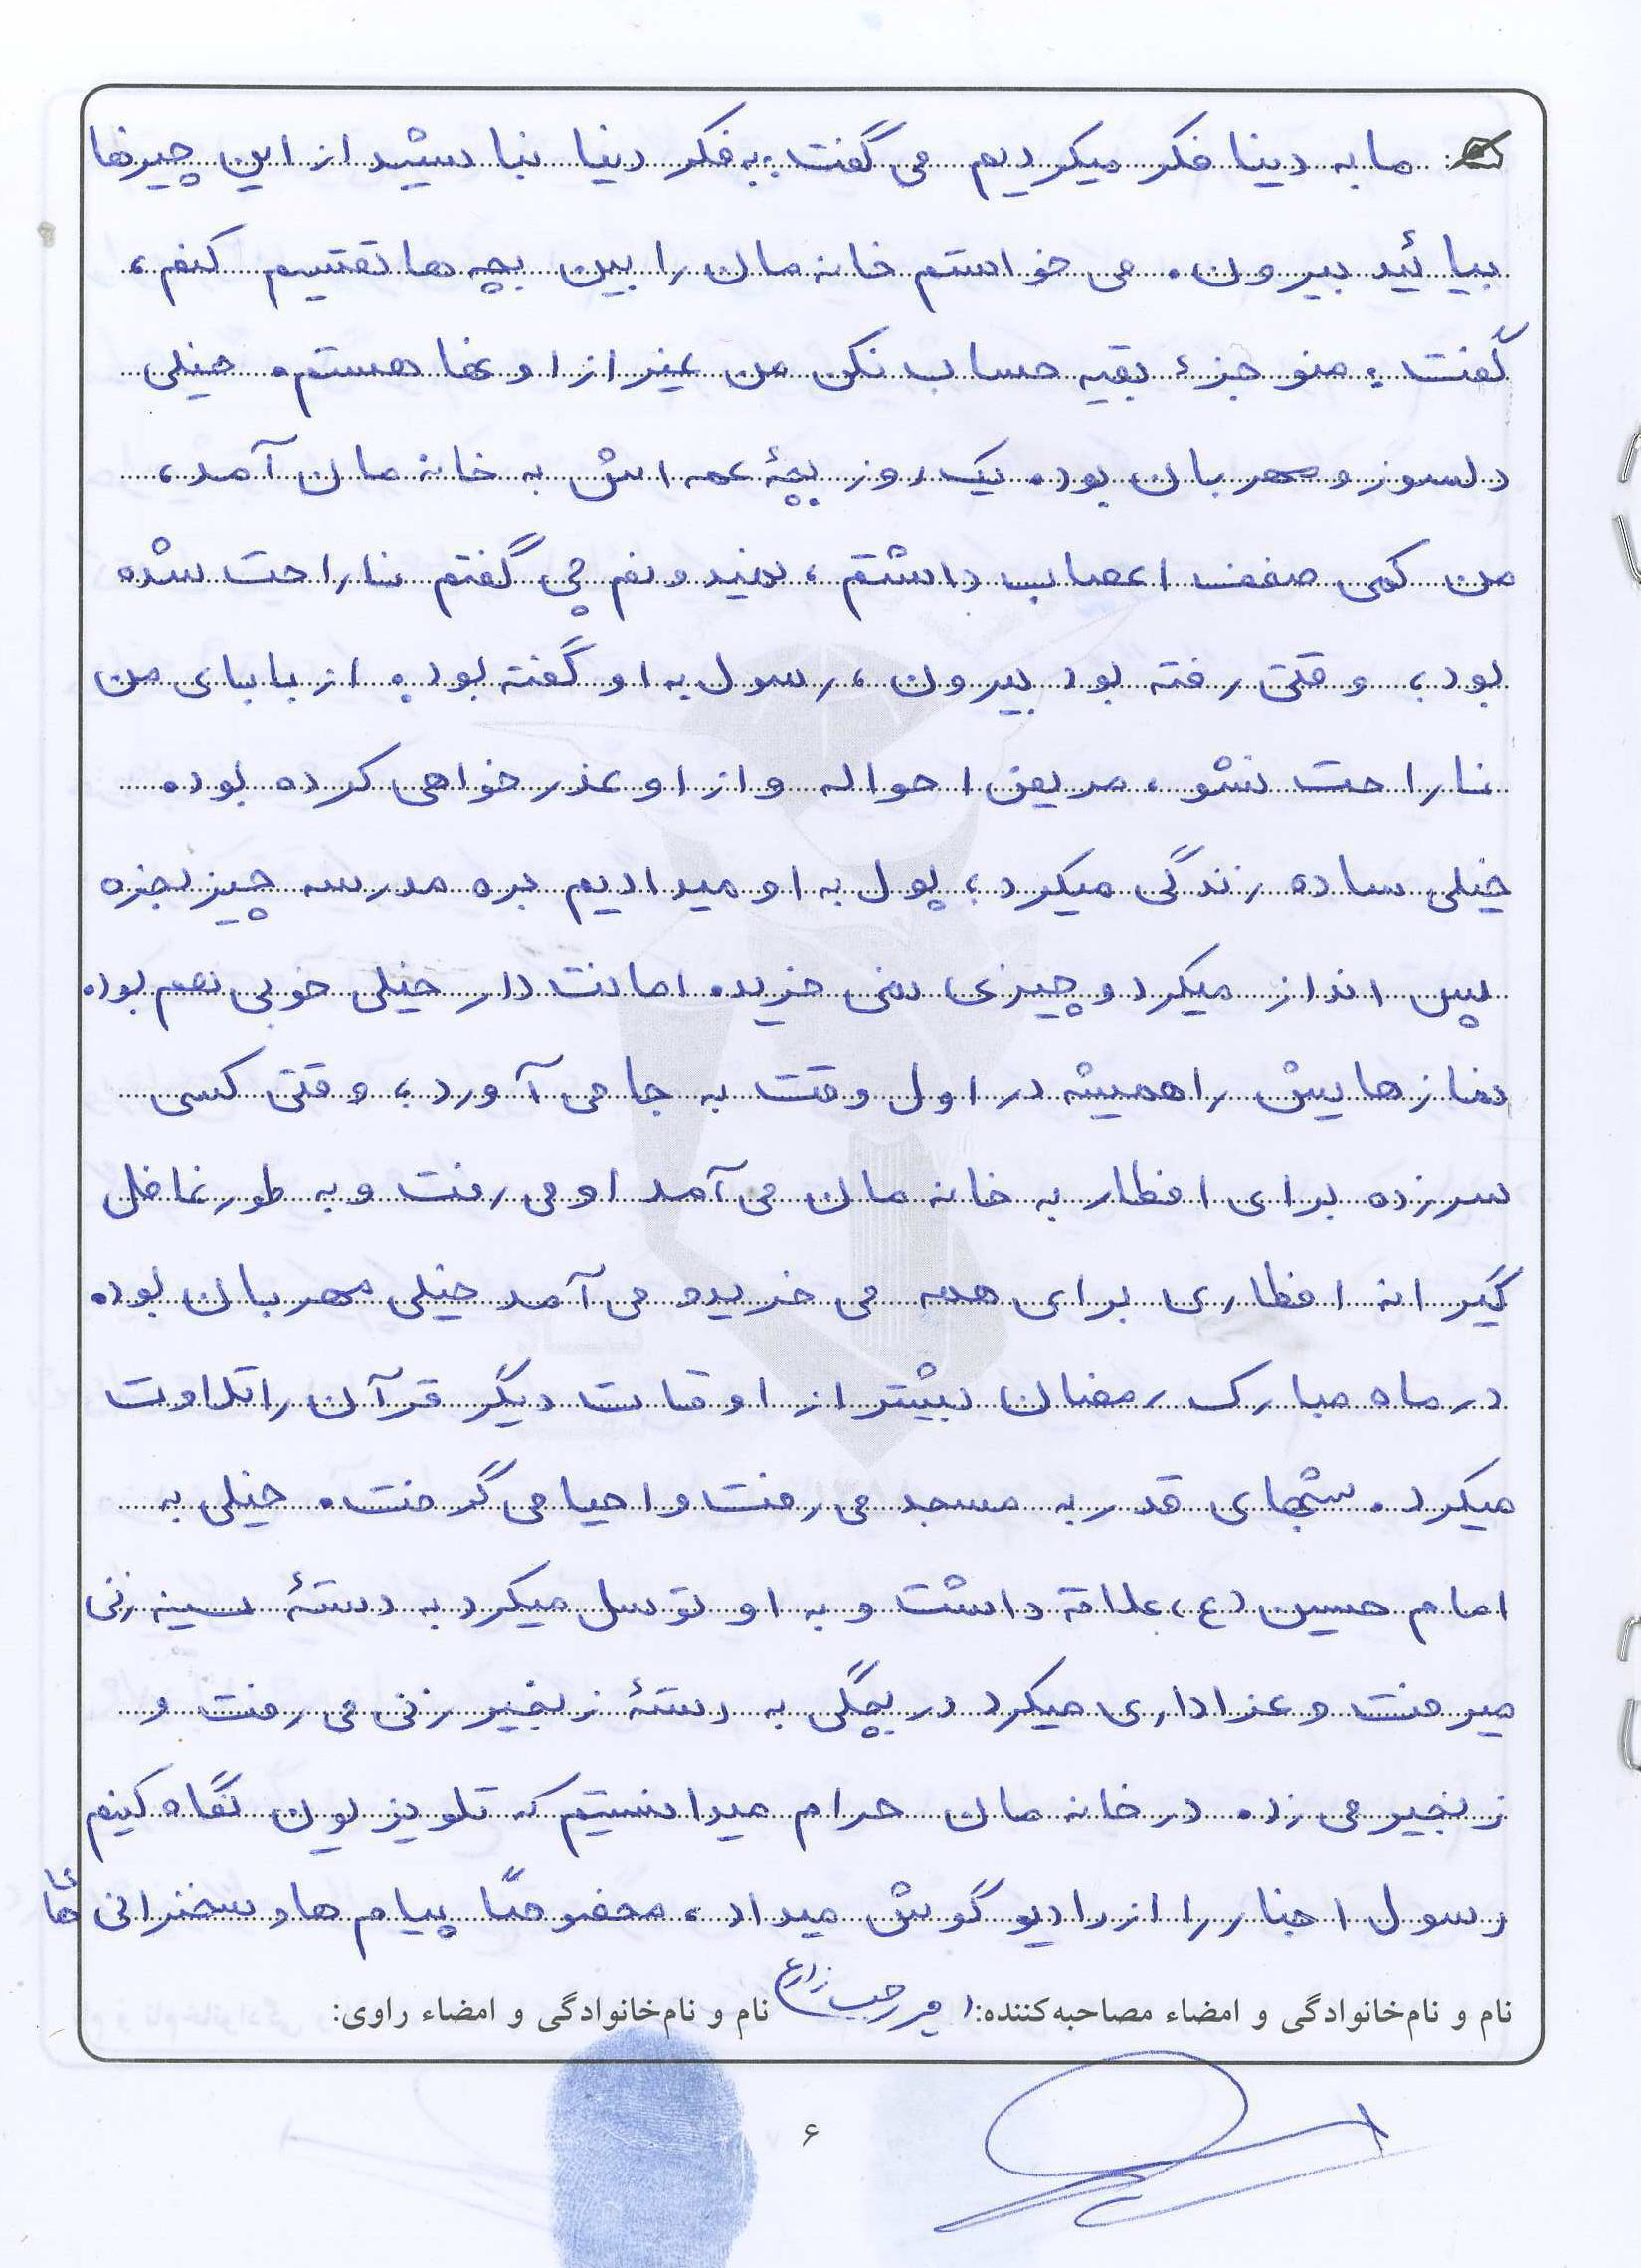 ما به دینا فکر میکردیم می گفت: به فکر دنیا نباشید از این چیزها
بیائید بیرون. می خواستم خانه مان را بین بچه ها تقسیم کنم،
گفت: منو جزء بقیه حساب نکن من غیر از اونها هستم. خیلی
دلسوز و مهربان بود. یک روز بچهٔ عمه اش به خانه مان آمد،
من کمی ضعف اعصاب داشتم، نمیدونم چی گفتم ناراحت شده
بود، وقتی رفته بود بیرون، رسول به او گفته بود: از بابای من
ناراحت نشو، مریض احواله و از او عذرخواهی کرده بود.
خیلی ساده زندگی میکرد، پول به او میدادیم بره مدرسه چیز بخره
پس انداز میکرد و چیزی نمی خرید. امانت دار خیلی خوبی هم بود.
نمازهایش را همیشه در اول وقت به جا می آورد، وقتی کسی
سرزده برای افطار به خانه مان می آمد او می رفت و به طور غافل
گیرانه افطاری برای همه می خرید و می آمد خیلی مهربان بود.
در ماه مبارک رمضان بیشتر از اوقات دیگر قرآن را تلاوت
میکرد. شبهای قدر به مسجد می رفت و احیا می گرفت. خیلی به
امام حسین (ع) علاقه داشت و به او توسل میکرد به دستهٔ سینه زنی
میرفت و عزاداری میکرد در بچگی به دستهٔ زنجیر زنی می رفت و
زنجیر می زد. در خانه مان حرام میدانستیم که تلویزیون نگاه کنیم
رسول اخبار را از رادیو گوش میداد، مخصوصاً پیام ها و سخنرانی های
نام و نام‌خانوادگی و امضاء مصاحبه‌کننده: نام و نام‌خانوادگی و امضاء راوی:
۶